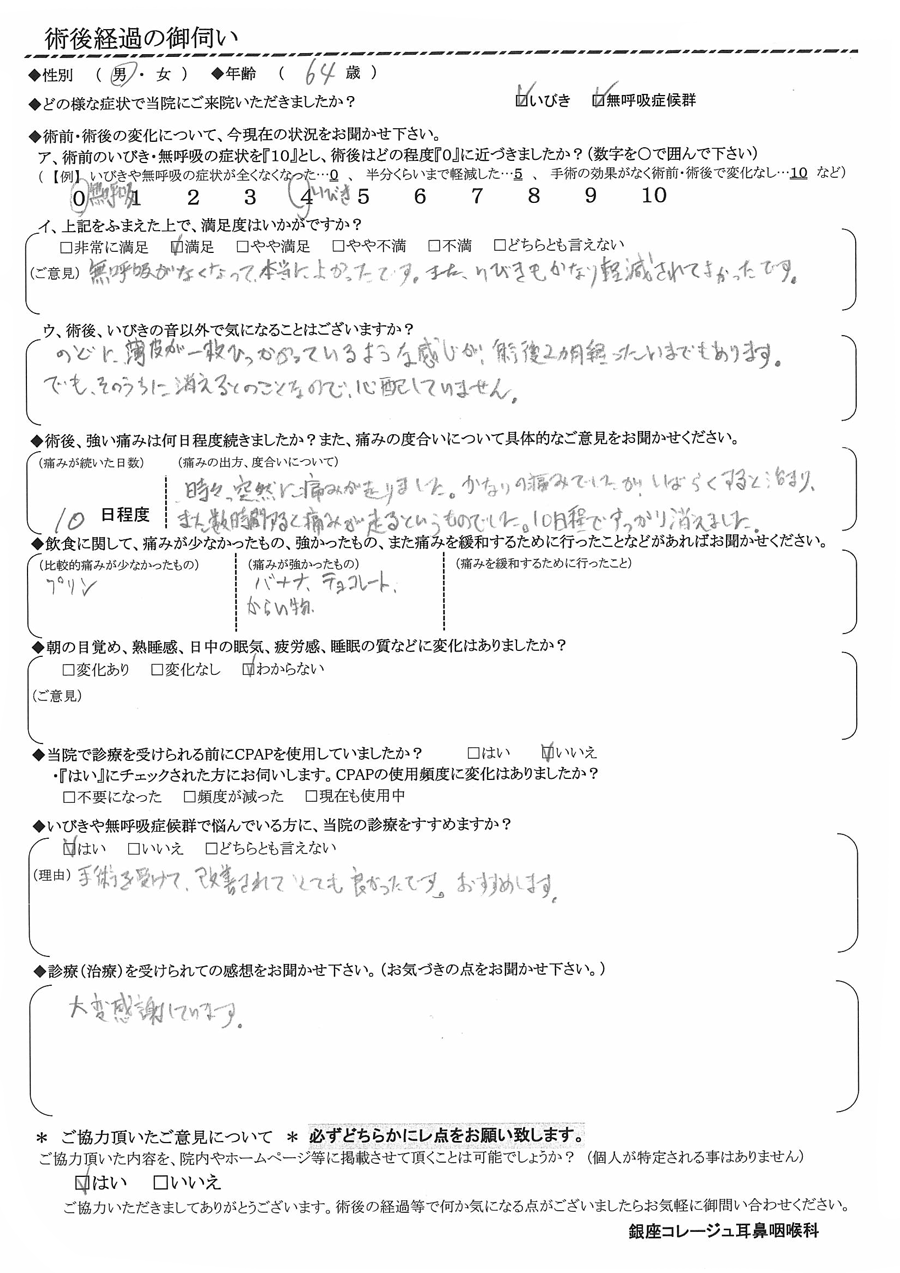 術後経過の御伺い
◆性別 （ 男 ・ 女 ） ◆年齢 （ 64 歳 ）
◆どの様な症状で当院にご来院いただきましたか？ ☑いびき ☑無呼吸症候群
◆術前・術後の変化について、今現在の状況をお聞かせ下さい。
ア、術前のいびき・無呼吸の症状を『10』とし、術後はどの程度『0』に近づきましたか？（数字を〇で囲んで下さい）
（【例】 いびきや無呼吸の症状が全くなくなった…0 、 半分くらいまで軽減した…5 、 手術の効果がなく術前・術後で変化なし…10 など）
0 無呼吸 1 2 3 4 いびき 5 6 7 8 9 10
イ、上記をふまえた上で、満足度はいかがですか？
□非常に満足 ☑満足 □やや満足 □やや不満 □不満 □どちらとも言えない
（ご意見） 無呼吸がなくなって、本当によかったです。また、いびきもかなり軽減されてよかったです。
ウ、術後、いびきの音以外で気になることはございますか？
のどに薄皮が一枚ひっかかっているような感じが、術後2カ月経ったいまでもあります。
でも、そのうちに消えるとのことなので、心配していません。
◆術後、強い痛みは何日程度続きましたか？また、痛みの度合いについて具体的なご意見をお聞かせください。
（痛みが続いた日数） （痛みの出方、度合いについて）
時々、突然に痛みが走りました。かなりの痛みでしたが、しばらくすると治まり、
10 日程度 また数時間すると痛みが走るというものでした。10日程ですっかり消えました。
◆飲食に関して、痛みが少なかったもの、強かったもの、また痛みを緩和するために行ったことなどがあればお聞かせください。
（比較的痛みが少なかったもの） （痛みが強かったもの） （痛みを緩和するために行ったこと）
プリン バナナ、チョコレート、
からい物
◆朝の目覚め、熟睡感、日中の眠気、疲労感、睡眠の質などに変化はありましたか？
□変化あり □変化なし ☑わからない
（ご意見）
◆当院で診療を受けられる前にCPAPを使用していましたか？ □はい ☑いいえ
・『はい』にチェックされた方にお伺いします。CPAPの使用頻度に変化はありましたか？
□不要になった □頻度が減った □現在も使用中
◆いびきや無呼吸症候群で悩んでいる方に、当院の診療をすすめますか？
☑はい □いいえ □どちらとも言えない
（理由） 手術を受けて、改善されてとても良かったです。おすすめします。
◆診療（治療）を受けられての感想をお聞かせ下さい。（お気づきの点をお聞かせ下さい。）
大変感謝しています。
＊ ご協力頂いたご意見について ＊ 必ずどちらかにレ点をお願い致します。
ご協力頂いた内容を、院内やホームページ等に掲載させて頂くことは可能でしょうか？ （個人が特定される事はありません）
☑はい □いいえ
ご協力いただきましてありがとうございます。術後の経過等で何か気になる点がございましたらお気軽に御問い合わせください。
銀座コレージュ耳鼻咽喉科